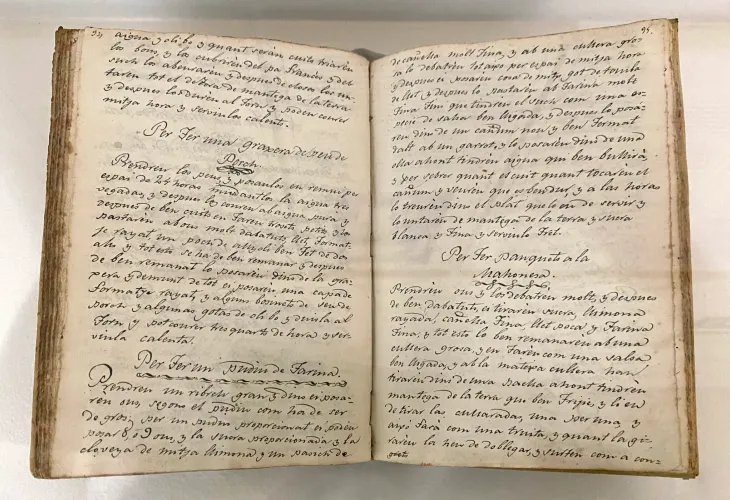 94
aigua, y oli bo, y quant serán cuits triareu
los bons, y la cubrireu del pa francés y del
such los abeurareu, y despues de closas los un-
tareu tot el detora de mantega de la terra
y despues lo dureu al forn, y poden courer
mitja hora y serviulos calents.
Per Fer una graxera de peu de
Porch.
Prendreu los peus, y posaulos en remui per
espay de 24 horas mudantlos la aigua tres
vegadas, y despues los coureu ab aigua pura y
despues de ben cuits en fareu trosets petits, y los
pastareu ab ous molt debatuts, llet, format-
je rayat, un poch de allyoli ben fet de dos
alls, y tot este se ha de ben remanar y despues
de ben remanat lo posareu dins de la gra-
xera y demunt de tot ei posareu una capa de
formatje rayat, y alguns bocinets de peu de
porch, y algunas gotas de oli bo, y duisla al
forn, y pot courer tres quarts de hora y ser-
viula calenta.
Per Fer un pudin de Farina.
Prendreu un ribrell gran, y dins ei posa-
reu ous, segons el pudin com ha de ser
de gros; per un pudin proporcionat ei podeu
posar 8, o 9 ous, y la sucra proporcionada y la
cloveya de mitja llimona y un pauch de
95.
de cañella molt fina, y ab una cullera gro-
sa lo debatreu tot axo per espay de mitja hora
y despues ei posareu cosa de mitx got de
de llet, y despues lo pastareu ab farina molt
fina fins que tindreu el such com una es-
pecie de salsa ben lligada, y despues lo posa-
reu dins de un cañum nou y ben fermat
dalt ab un garrot, y lo posareu dins de una
olla ahont tindreu aigua que ben bullirá,
y per sebrer quant el cuit quant tocareu el
cañum, y veureu que es ben dur, y a las hora
lo treureu dins el plat que lo en de servir y
lo untareu de mantega de la terra y sucra
blanca y fina y serviulo fret.
Per Fer Panquets a la
Mahonesa.
Prendreu ous y los debatreu molt, y despues
de ben debatuts, ei tirareu sucra, llimona
rayada, cañella fina, llet poca, y farina
fina, y tot esto lo ben remanareu ab una
cullera grosa, y en fareu com una salsa
ben lligada, y ab la matexa cullera han
tirareu dins de una paella ahont tindreu
mantega de la terra que ben fregís, y li eu
de tirar las culleradas, una per una, y
axi fará com una truita, y quant la gi-
rareu la heu de doblegar, y surten com a con-